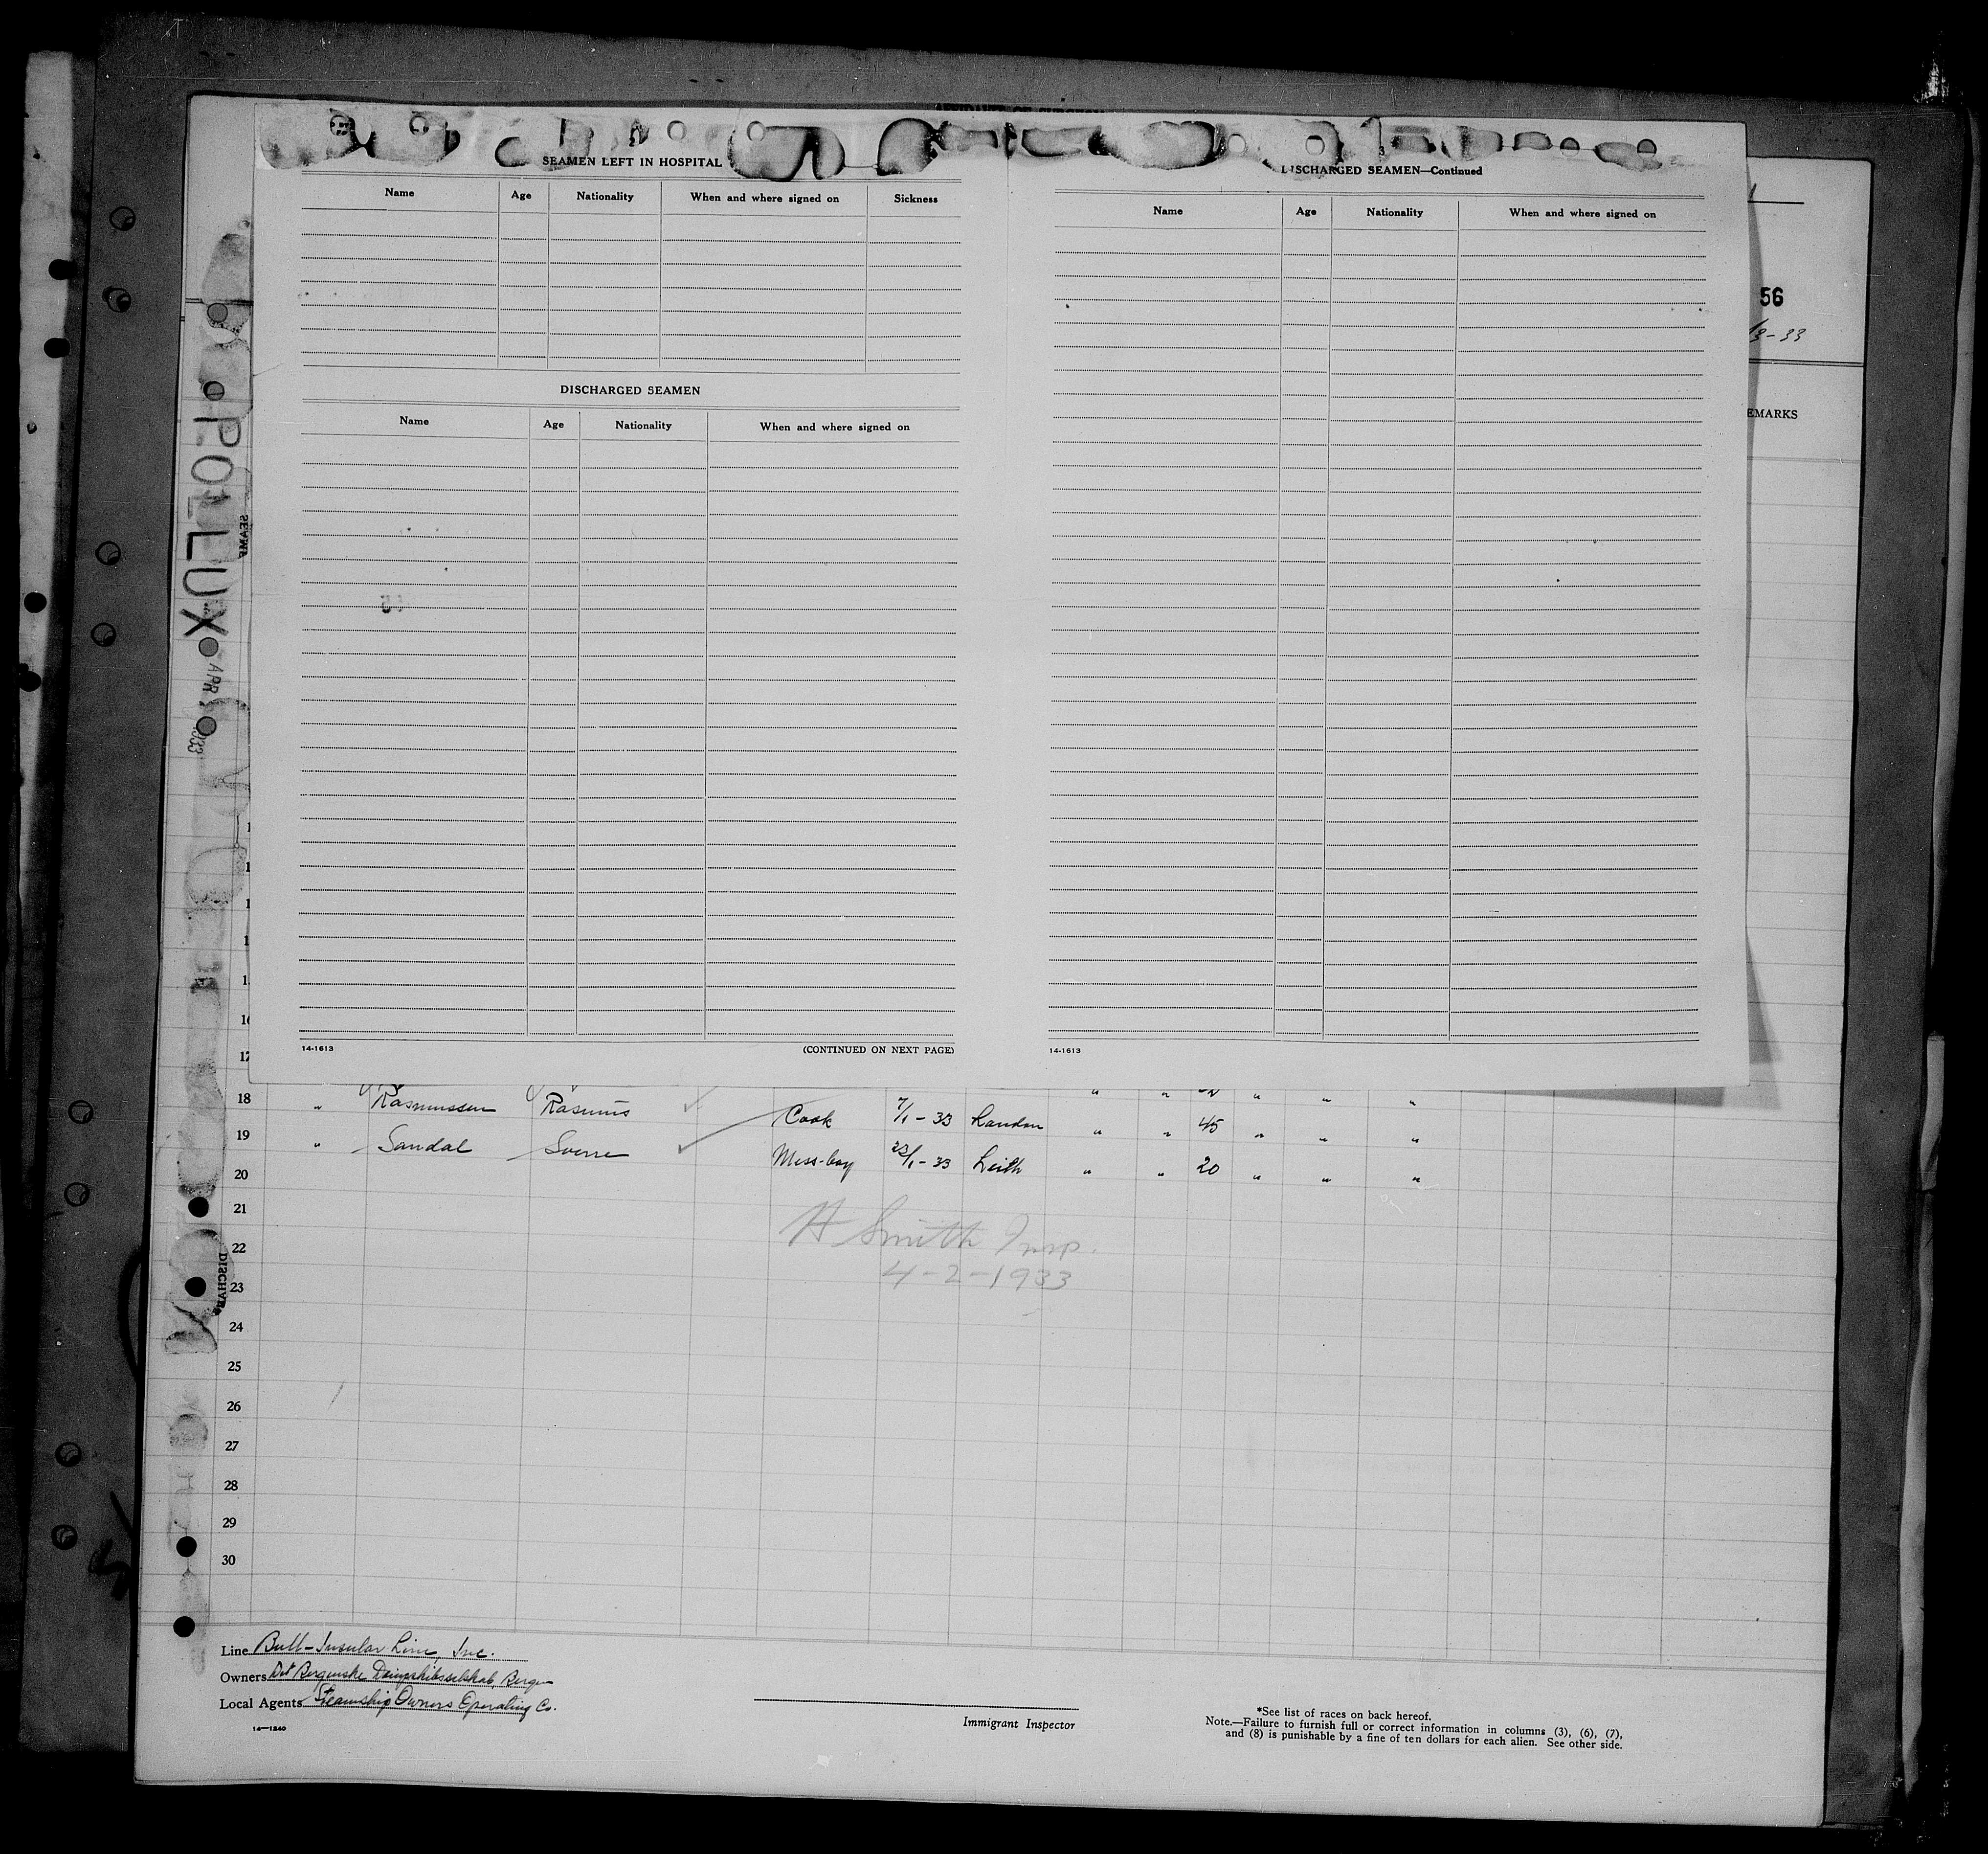 SEAMEN LEFT IN HOSPITAL
Name Age Nationality When and where signed on Sickness
DISCHARGED SEAMEN
Name Age Nationality When and where signed on
14-1613 (CONTINUED ON NEXT PAGE)
DISCHARGED SEAMEN—Continued
Name Age Nationality When and where signed on
14-1613
56
EMARKS
POLLUX
APR
SEAME
17
18 " Rasmussen Rasmus Cook 7/1-33 London " " 45 " " "
19 " Sandal Sverre Mess-boy 23/1-33 Leith " " 20 " " "
20
21
22
23
24
25
26
27
28
29
30
H Smith Insp.
4-2-1933
Line Bull-Insular Line, Inc.
Owners Det Bergenske Dampskibsselskab, Bergen
Local Agents Steamship Owners Operating Co.
14—1240
Immigrant Inspector
*See list of races on back hereof.
Note.—Failure to furnish full or correct information in columns (3), (6), (7),
and (8) is punishable by a fine of ten dollars for each alien. See other side.